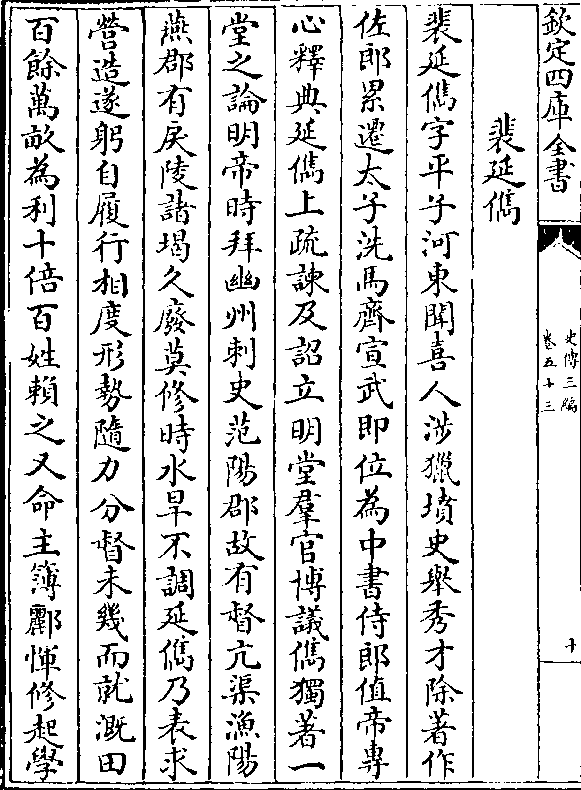 欽定四庫全書
史傳三編
卷五十三
十
裴延儁
裴延儁字平子河東聞喜人涉獵墳史舉秀才除著作
佐郎累遷太子洗馬齊宣武即位為中書侍郎值帝專
心釋典延儁上疏諫及詔立明堂羣官博議儁獨著一
堂之論明帝時拜幽州刺史范陽郡故有督亢渠漁陽
燕郡有戾陵諸堨久廢莫修時水旱不調延儁乃表求
營造遂躬自履行相度形勢隨力分督未幾而就溉田
百餘萬畝為利十倍百姓賴之又命主簿酈惲修起學